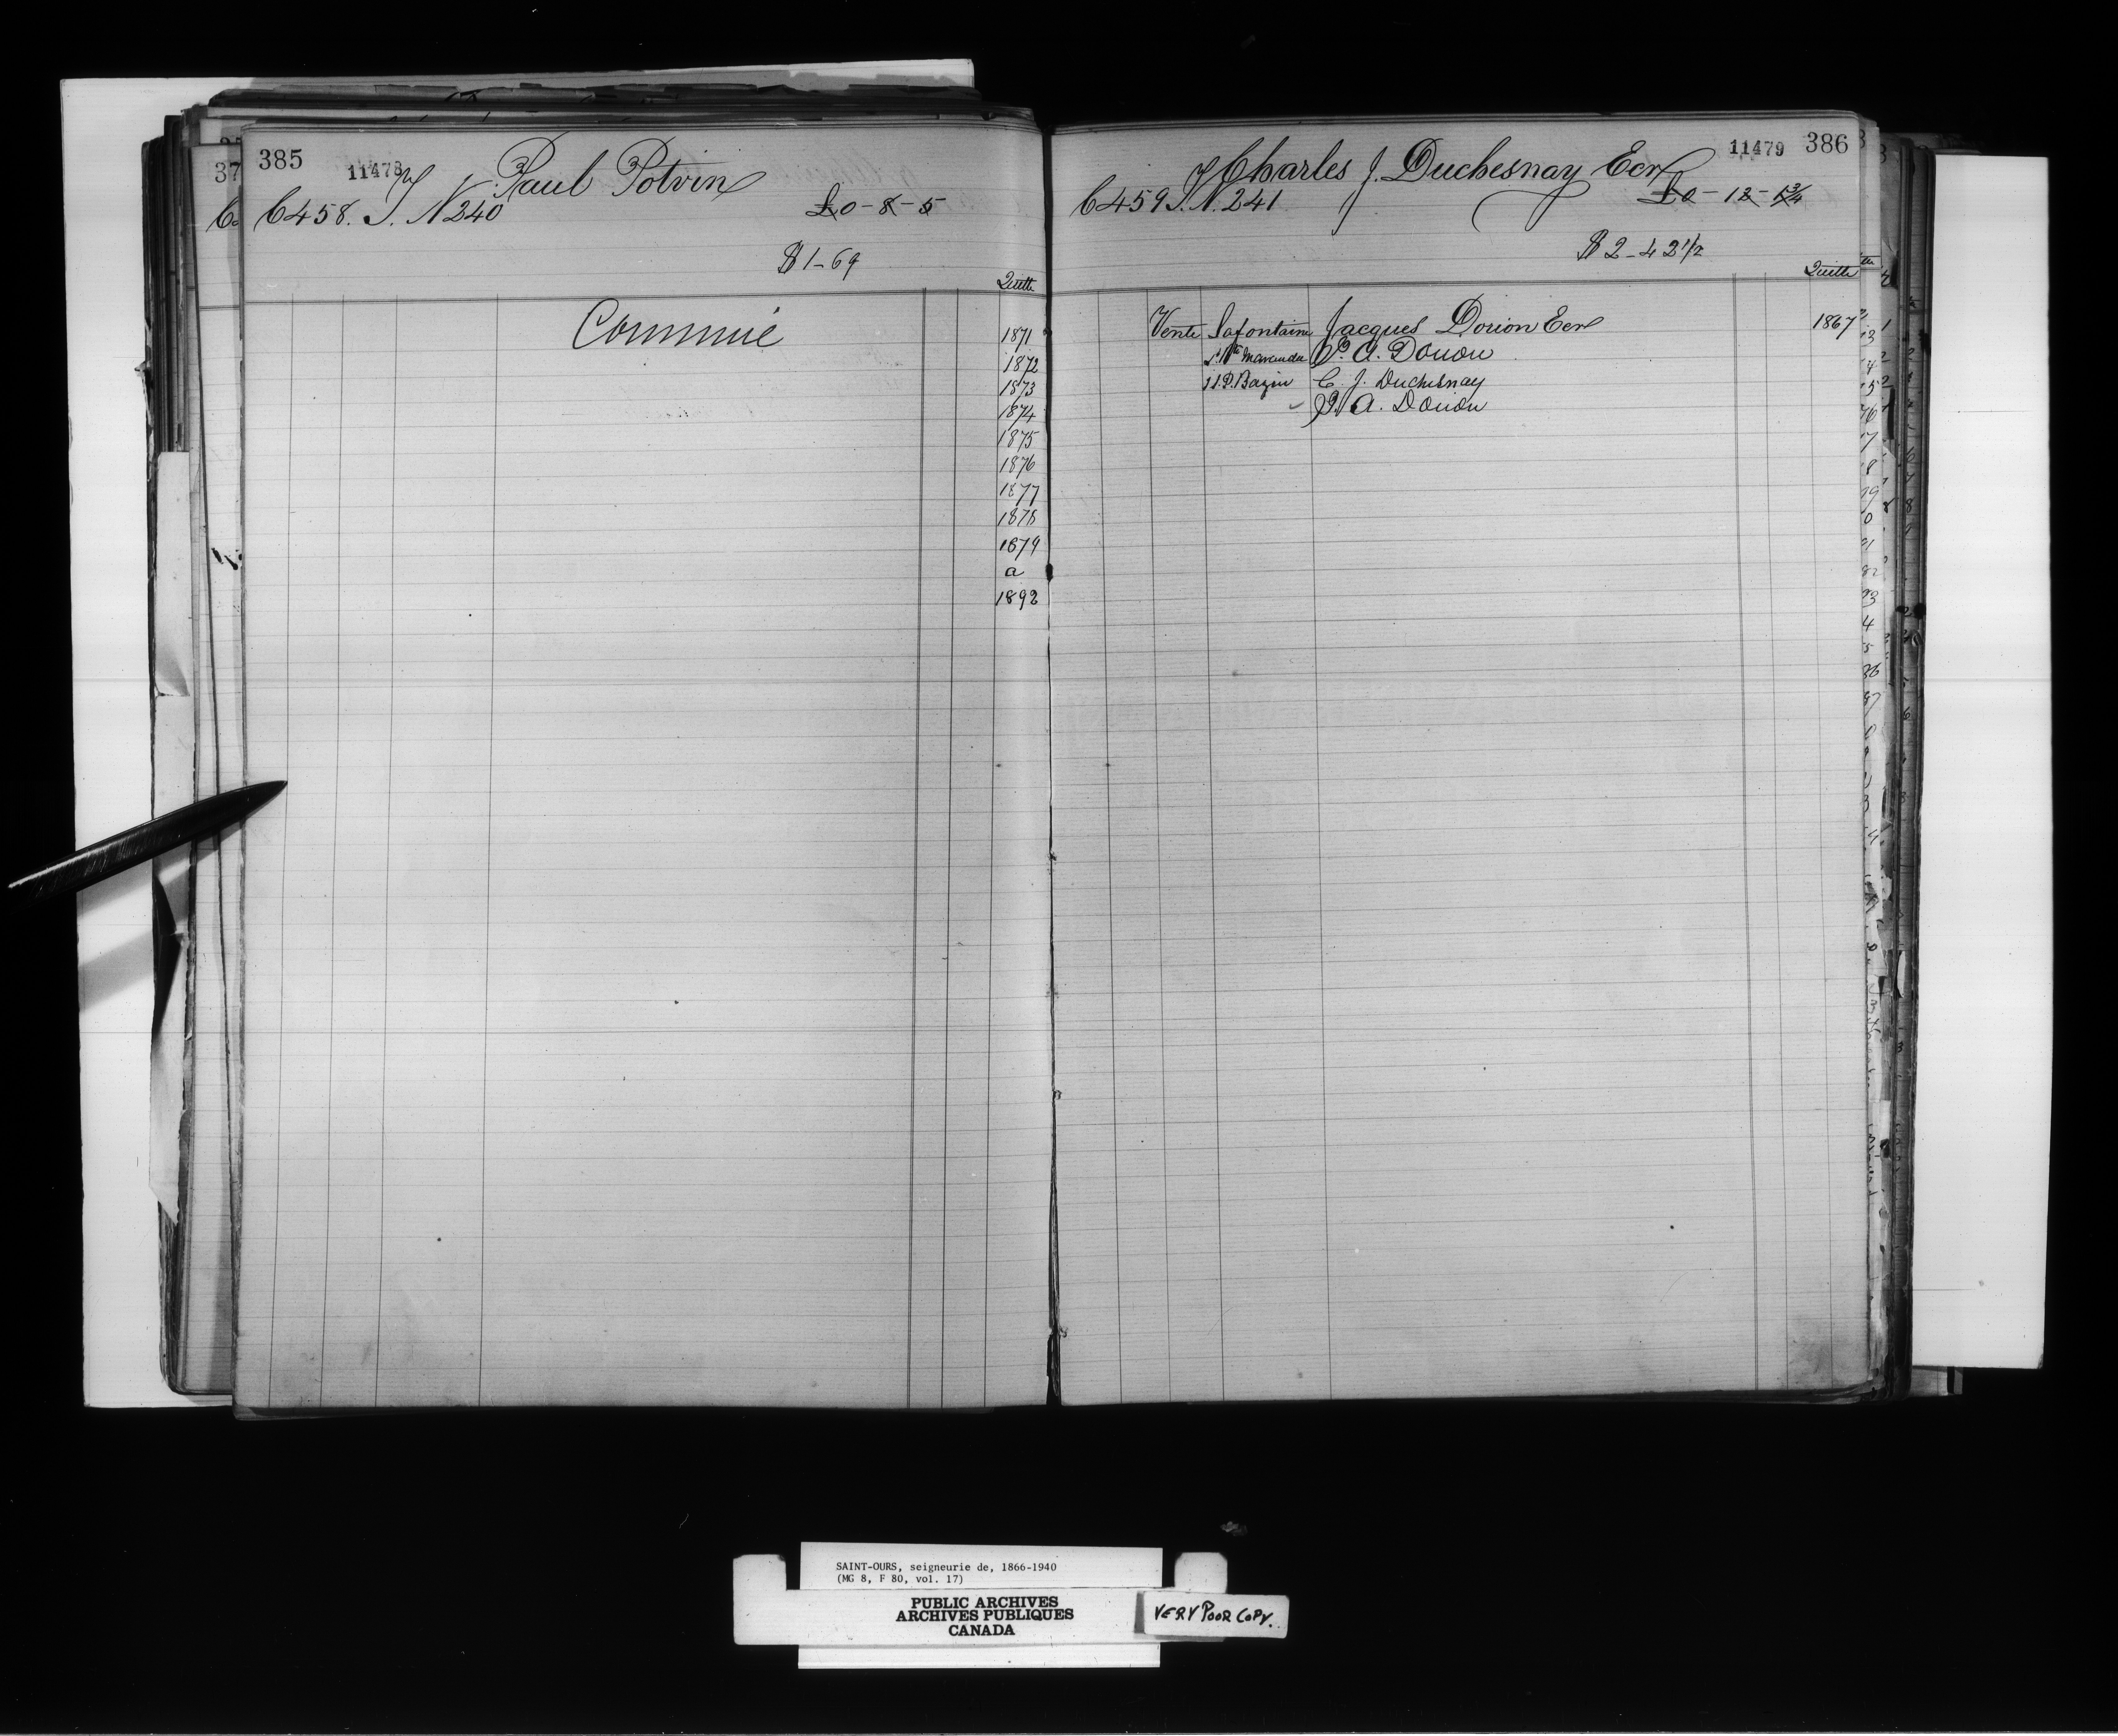 385
11478
Paul Potvin
C 458. T. N 240
£0-8-5
$1-69
Quitte
Commué
1871
1872
1873
1874
1875
1876
1877
1878
1879
a
1892
11479
386
Charles J. Duchesnay Ecr
C 459 T. N. 241
£0-12-1¾
$2-42½
Quitte
Vente Lafontaine Jacques Dorion Ecr 1867
P. A. Dorion
J.P. Bazin C. J. Duchesnay
P. A. Dorion
SAINT-OURS, seigneurie de, 1866-1940
(MG 8, F 80, vol. 17)
PUBLIC ARCHIVES
ARCHIVES PUBLIQUES
CANADA
VERY POOR COPY.